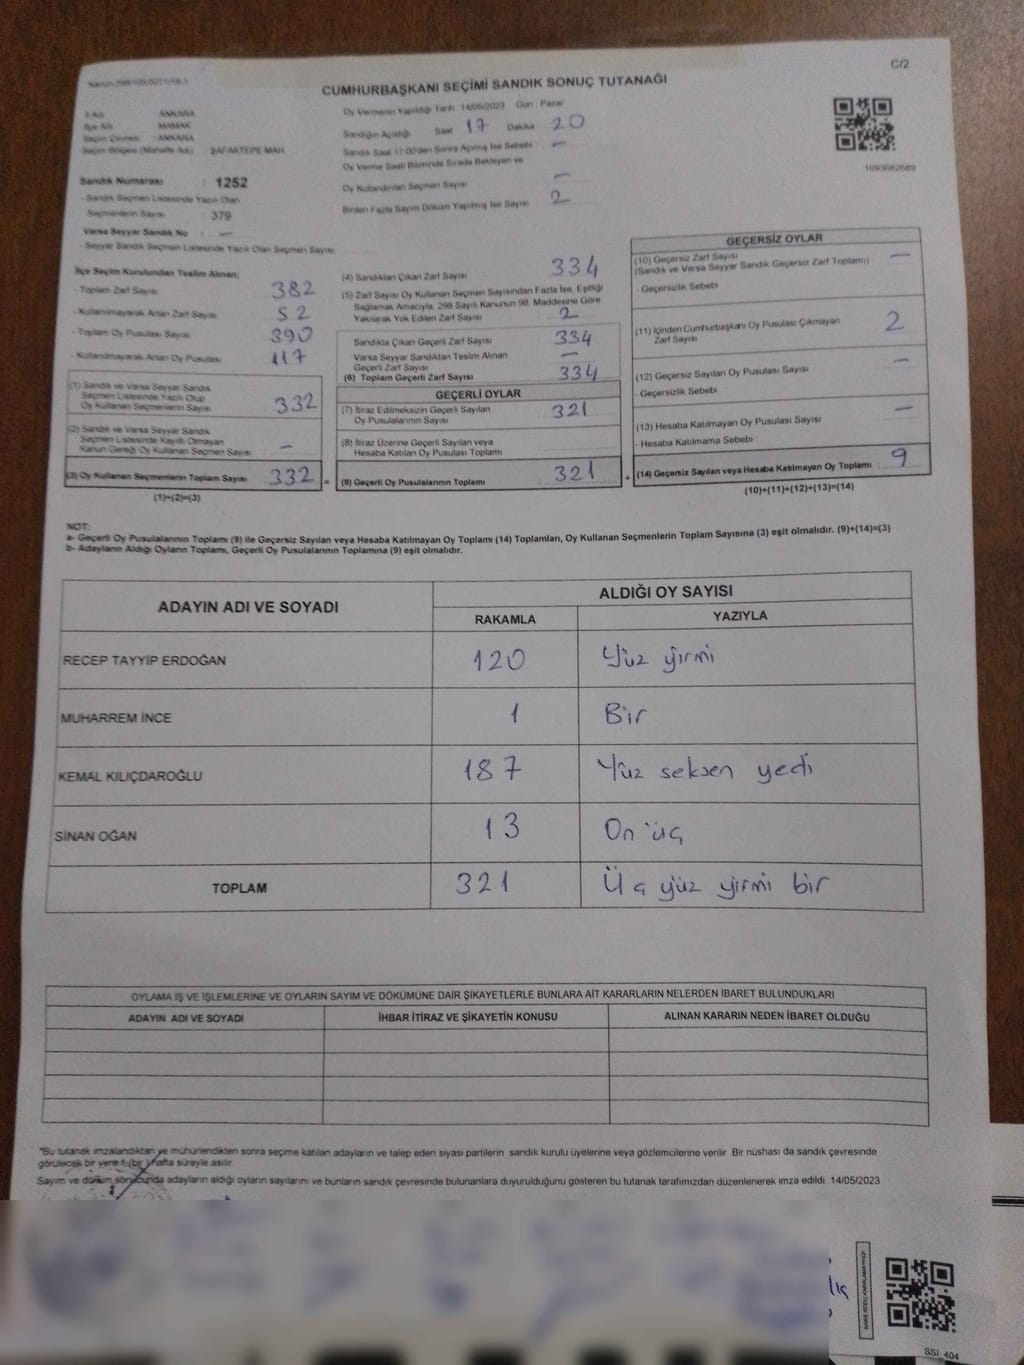 C/2
CUMHURBAŞKANI SEÇİMİ SANDIK SONUÇ TUTANAĞI
İl Adı ANKARA
İlçe Adı MAMAK
Seçim Çevresi : ANKARA
Seçim Bölgesi (Mahalle Adı) : ŞAFAKTEPE MAH.
Sandık Numarası : 1252
- Sandık Seçmen Listesinde Yazılı Olan
Seçmenlerin Sayısı : 379
Varsa Seyyar Sandık No : –
- Seyyar Sandık Seçmen Listesinde Yazılı Olan Seçmen Sayısı
Oy Vermenin Yapıldığı Tarih : 14/05/2023 Gün : Pazar
Sandığın Açıldığı Saat 17 Dakika 20
Sandık Saat 17:00'den Sonra Açılmış İse Sebebi –
Oy Verme Saati Bitiminde Sırada Bekleyen ve
Oy Kullandırılan Seçmen Sayısı –
Birden Fazla Sayım Döküm Yapılmış İse Sayısı 2
1093082689
İlçe Seçim Kurulundan Teslim Alınan;
- Toplam Zarf Sayısı 382
- Kullanılmayarak Artan Zarf Sayısı 52
- Toplam Oy Pusulası Sayısı 390
- Kullanılmayarak Artan Oy Pusulası 117
(1) Sandık ve Varsa Seyyar Sandık
Seçmen Listesinde Yazılı Olup
Oy Kullanan Seçmenlerin Sayısı 332
(2) Sandık ve Varsa Seyyar Sandık
Seçmen Listesinde Kayıtlı Olmayan
Kanun Gereği Oy Kullanan Seçmen Sayısı –
(3) Oy Kullanan Seçmenlerin Toplam Sayısı 332 =
(1)+(2)=(3)
(4) Sandıktan Çıkan Zarf Sayısı 334
(5) Zarf Sayısı Oy Kullanan Seçmen Sayısından Fazla İse, Eşitliği
Sağlamak Amacıyla, 298 Sayılı Kanunun 98. Maddesine Göre
Yakılarak Yok Edilen Zarf Sayısı 2
Sandıkta Çıkan Geçerli Zarf Sayısı 334
Varsa Seyyar Sandıktan Teslim Alınan
Geçerli Zarf Sayısı –
(6) Toplam Geçerli Zarf Sayısı 334
GEÇERLİ OYLAR
(7) İtiraz Edilmeksizin Geçerli Sayılan
Oy Pusulalarının Sayısı 321
(8) İtiraz Üzerine Geçerli Sayılan veya
Hesaba Katılan Oy Pusulası Toplamı
(9) Geçerli Oy Pusulalarının Toplamı 321 +
GEÇERSİZ OYLAR
(10) Geçersiz Zarf Sayısı –
(Sandık ve Varsa Seyyar Sandık Geçersiz Zarf Toplamı)
- Geçersizlik Sebebi
(11) İçinden Cumhurbaşkanı Oy Pusulası Çıkmayan
Zarf Sayısı 2
(12) Geçersiz Sayılan Oy Pusulası Sayısı –
- Geçersizlik Sebebi
(13) Hesaba Katılmayan Oy Pusulası Sayısı –
- Hesaba Katılmama Sebebi :
(14) Geçersiz Sayılan veya Hesaba Katılmayan Oy Toplamı 9
(10)+(11)+(12)+(13)=(14)
NOT:
a- Geçerli Oy Pusulalarının Toplamı (9) ile Geçersiz Sayılan veya Hesaba Katılmayan Oy Toplamı (14) Toplamları, Oy Kullanan Seçmenlerin Toplam Sayısına (3) eşit olmalıdır. (9)+(14)=(3)
b- Adayların Aldığı Oyların Toplamı, Geçerli Oy Pusulalarının Toplamına (9) eşit olmalıdır.
ADAYIN ADI VE SOYADI
ALDIĞI OY SAYISI
RAKAMLA YAZIYLA
RECEP TAYYİP ERDOĞAN 120 Yüz yirmi
MUHARREM İNCE 1 Bir
KEMAL KILIÇDAROĞLU 187 Yüz seksen yedi
SİNAN OĞAN 13 On üç
TOPLAM 321 Üç yüz yirmi bir
OYLAMA İŞ VE İŞLEMLERİNE VE OYLARIN SAYIM VE DÖKÜMÜNE DAİR ŞİKAYETLERLE BUNLARA AİT KARARLARIN NELERDEN İBARET BULUNDUKLARI
ADAYIN ADI VE SOYADI İHBAR İTİRAZ VE ŞİKAYETİN KONUSU ALINAN KARARIN NEDEN İBARET OLDUĞU
*Bu tutanak imzalandıktan ve mühürlendikten sonra seçime katılan adayların ve talep eden siyasi partilerin sandık kurulu üyelerine veya gözlemcilerine verilir. Bir nüshası da sandık çevresinde
görülecek bir yere 1 (bir) hafta süreyle asılır.
Sayım ve döküm sonucunda adayların aldığı oyların sayılarını ve bunların sandık çevresinde bulunanlara duyurulduğunu gösteren bu tutanak tarafımızdan düzenlenerek imza edildi. 14/05/2023
SSI_404